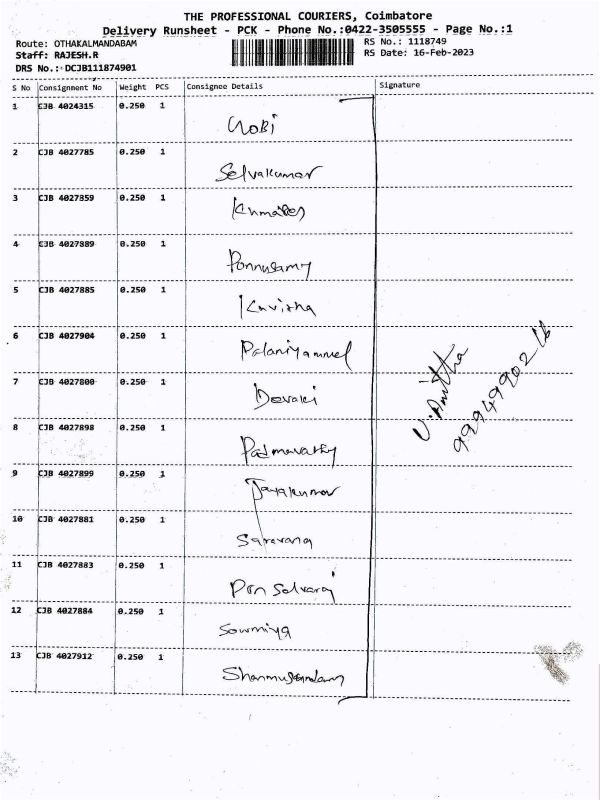 THE PROFESSIONAL COURIERS, Coimbatore
Delivery Runsheet - PCK - Phone No.:0422-3505555 - Page No.:1
Route: OTHAKALMANDABAM RS No.: 1118749
Staff: RAJESH.R RS Date: 16-Feb-2023
DRS No.: DCJB111874901
S No Consignment No Weight PCS Consignee Details Signature
1 CJB 4024315 0.250 1 Gobi
2 CJB 4027785 0.250 1 Selvakumar
3 CJB 4027859 0.250 1
4 CJB 4027889 0.250 1 Ponnusamy
5 CJB 4027885 0.250 1 Kavitha
6 CJB 4027904 0.250 1 Palaniyammal
7 CJB 4027800 0.250 1 Devaki
8 CJB 4027898 0.250 1 Padmavathy
9 CJB 4027899 0.250 1 Jayakumar
10 CJB 4027881 0.250 1 Saravana
11 CJB 4027883 0.250 1 Pon Selvaraj
12 CJB 4027884 0.250 1 Sowmiya
13 CJB 4027912 0.250 1
V. Anitha
9994990216